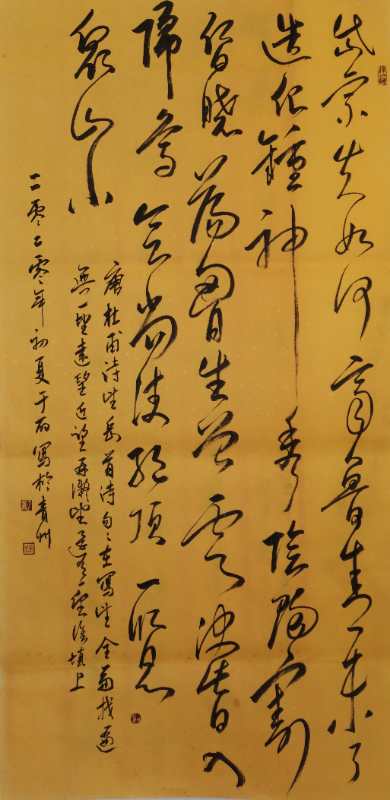 岱宗夫如何齊魯青未了
造化鍾神秀陰陽割
昏曉蕩胸生曾雲決眥入
歸鳥會當凌絕頂一覽
眾山小
唐杜甫詩望岳首詩句句在寫望全篇找遍
無一望遠望近望再凝望
二零二零年初夏于寫於青州